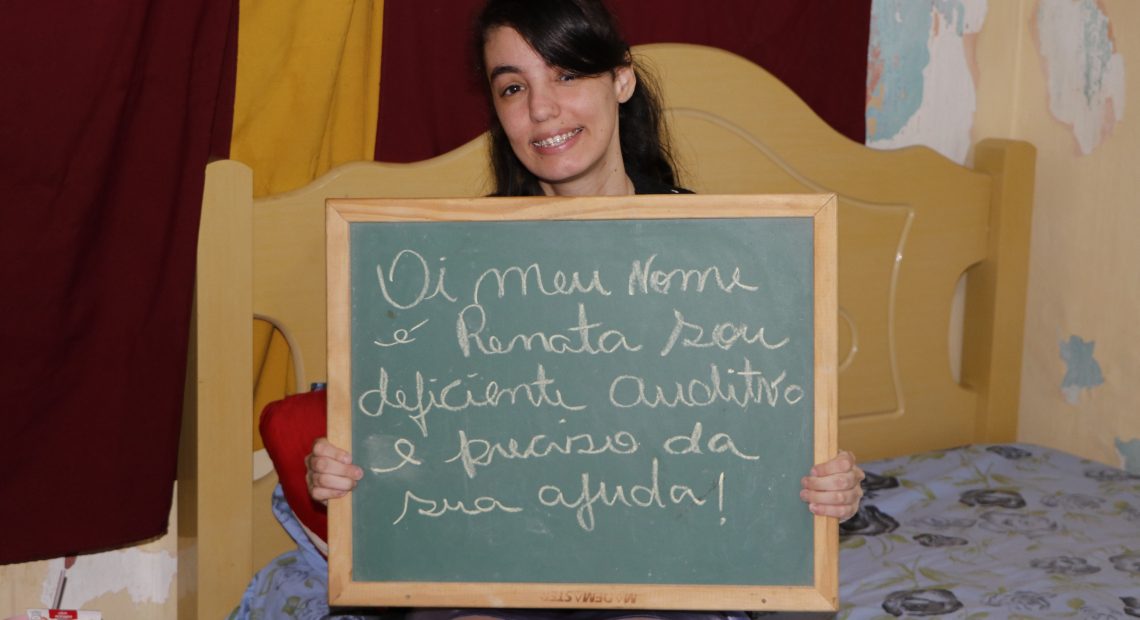 Oi meu Nome
é Renata sou
deficiente auditivo
e preciso da
sua ajuda!
MADEMASTER